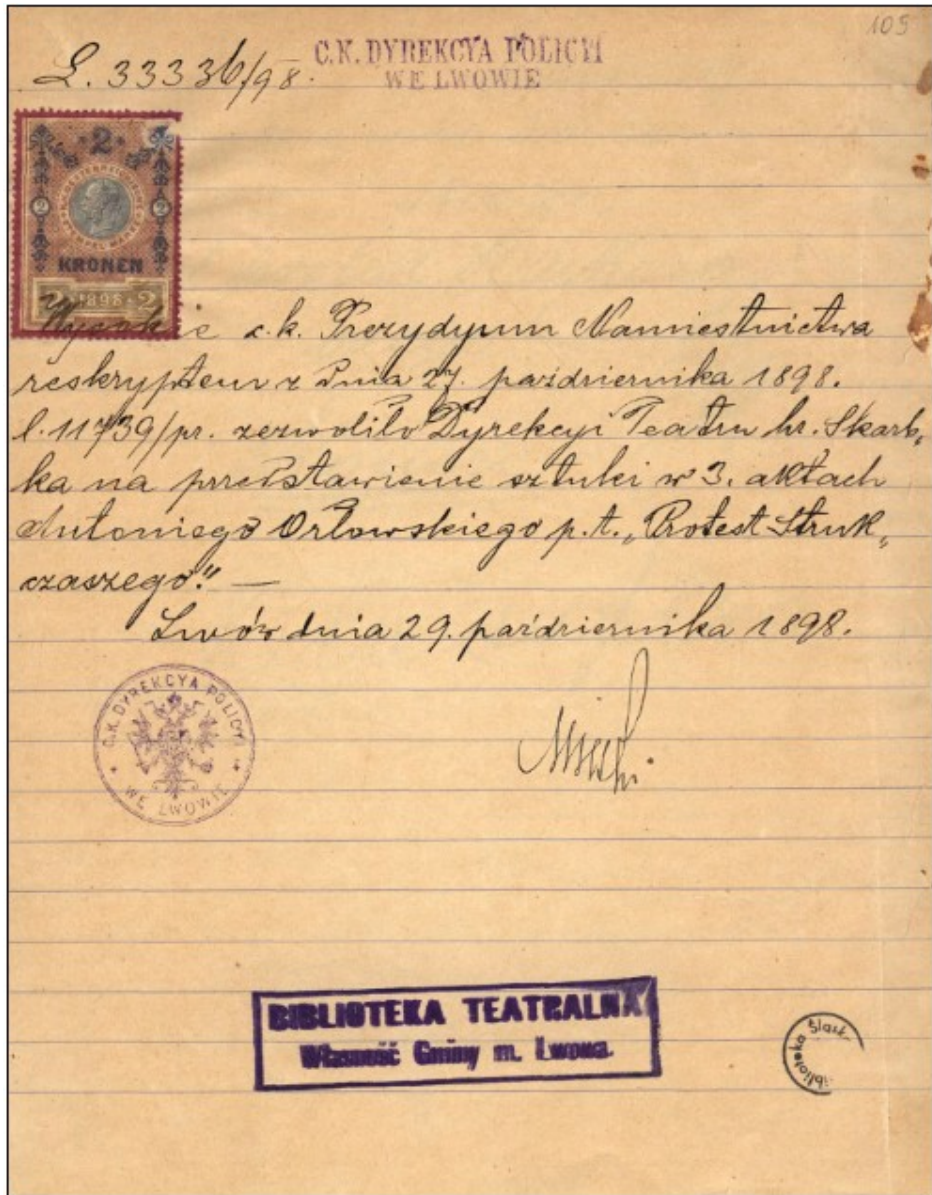 109
L. 33336/98.
C.K. DYREKCYA POLICYI
WE LWOWIE
2
2 2
KRONEN
2 1898 2
Wysokie c.k. Prezydyum Namiestnictwa
reskryptem z dnia 27. października 1898.
l. 11739/pr. zezwoliło Dyrekcyi Teatru hr. Skarb„
ka na przedstawienie sztuki w 3. aktach
Antoniego Orłowskiego p.t. „Protest Struk„
czaszego." —
Lwów dnia 29. października 1898.
C.K. DYREKCYA POLICYI
WE LWOWIE
BIBLIOTEKA TEATRALNA
Własność Gminy m. Lwowa.
Biblioteka Śląsk